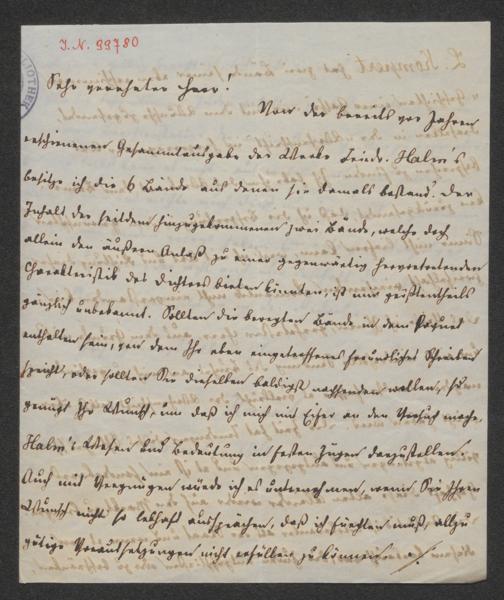 J. N. 99780
Sehr verehrter Herr!
Von der bereits vor Jahren
erschienenen Gesammtausgabe der Werke Friedr. Halm's
besitze ich die 6 Bände aus denen sie damals bestand. Der
Inhalt der seitdem hinzugekommenen zwei Bände, welche doch
allein den äußeren Anlaß zu einer gegenwärtig hervortretenden
Charakteristik des Dichters bieten könnten, ist mir größtentheils
gänzlich unbekannt. Sollten die beregten Bände in dem Paquet
enthalten sein, von dem Ihr eben eingetroffenes freundliches Schreiben
spricht, oder sollten Sie dieselben baldigst nachsenden wollen, so
genügt Ihr Wunsch, um daß ich mich mit Eifer an den Versuch mache,
Halm's Wesen und Bedeutung in festen Zügen darzustellen.
Auch mit Vergnügen würde ich es unternehmen, wenn Sie Ihren
Wunsch nicht so lebhaft aussprächen, daß ich fürchten muß, allzu
gütige Voraussetzungen nicht erfüllen zu können.